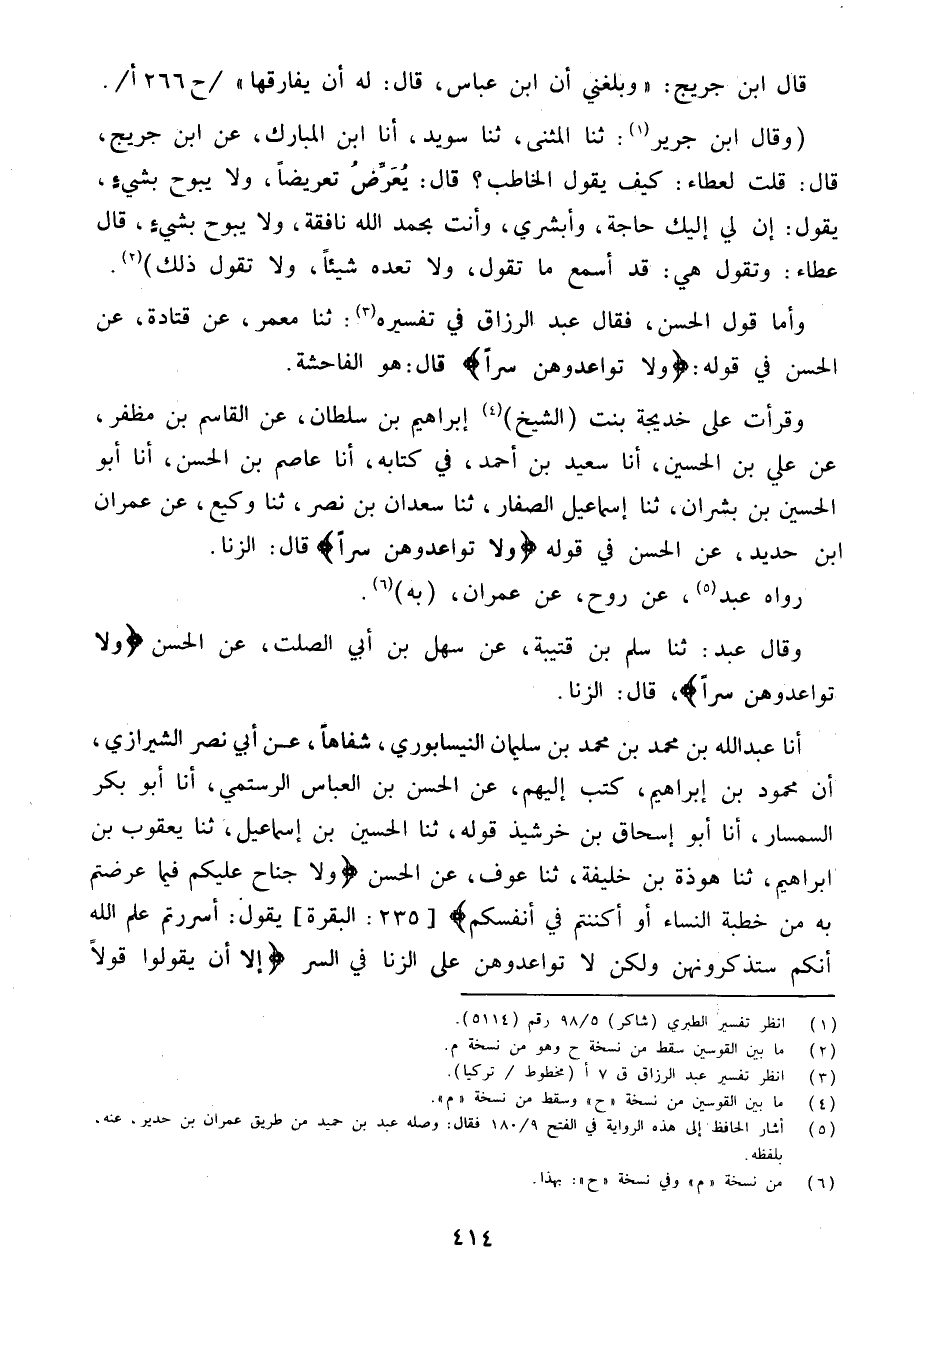 قال ابن جريج: «وبلغني أن ابن عباس، قال: له أن يفارقها» /ح ٢٦٦ أ/.
(وقال ابن جرير(١): ثنا المثنى، ثنا سويد، أنا ابن المبارك، عن ابن جريج،
قال: قلت لعطاء: كيف يقول الخاطب؟ قال: يُعَرِّضُ تعريضاً، ولا يبوح بشيءٍ،
يقول: إن لي إليك حاجة، وأبشري، وأنت بحمد الله نافقة، ولا يبوح بشيءٍ، قال
عطاء: وتقول هي: قد أسمع ما تقول، ولا تعده شيئاً، ولا تقول ذلك)(٢).
وأما قول الحسن، فقال عبد الرزاق في تفسيره(٣): ثنا معمر، عن قتادة، عن
الحسن في قوله: ﴿ولا تواعدوهن سراً﴾ قال: هو الفاحشة.
وقرأت على خديجة بنت (الشيخ)(٤) إبراهيم بن سلطان، عن القاسم بن مظفر،
عن علي بن الحسين، أنا سعيد بن أحمد، في كتابه، أنا عاصم بن الحسن، أنا أبو
الحسين بن بشران، ثنا إسماعيل الصفار، ثنا سعدان بن نصر، ثنا وكيع، عن عمران
ابن حديد، عن الحسن في قوله ﴿ولا تواعدوهن سراً﴾ قال: الزنا.
رواه عبد(٥)، عن روح، عن عمران، (به)(٦).
وقال عبد: ثنا سلم بن قتيبة، عن سهل بن أبي الصلت، عن الحسن ﴿ولا
تواعدوهن سراً﴾، قال: الزنا.
أنا عبدالله بن محمد بن محمد بن سليمان النيسابوري، شفاهاً، عن أبي نصر الشيرازي،
أن محمود بن إبراهيم، كتب إليهم، عن الحسن بن العباس الرستمي، أنا أبو بكر
السمسار، أنا أبو إسحاق بن خرشيذ قوله، ثنا الحسين بن إسماعيل، ثنا يعقوب بن
ابراهيم، ثنا هوذة بن خليفة، ثنا عوف، عن الحسن ﴿ولا جناح عليكم فيما عرضتم
به من خطبة النساء أو أكننتم في أنفسكم﴾ [٢٣٥: البقرة] يقول: أسررتم علم الله
أنكم ستذكرونهن ولكن لا تواعدوهن على الزنا في السر ﴿إلا أن يقولوا قولاً
(١) انظر تفسير الطبري (شاكر) ٩٨/٥ رقم (٥١١٤).
(٢) ما بين القوسين سقط من نسخة ح وهو من نسخة م.
(٣) انظر تفسير عبد الرزاق ق ٧ أ (مخطوط / تركيا).
(٤) ما بين القوسين من نسخة «ح» وسقط من نسخة «م».
(٥) أشار الحافظ إلى هذه الرواية في الفتح ١٨٠/٩ فقال: وصله عبد بن حميد من طريق عمران بن حدير، عنه،
بلفظه.
(٦) من نسخة «م» وفي نسخة «ح»: بهذا.
٤١٤